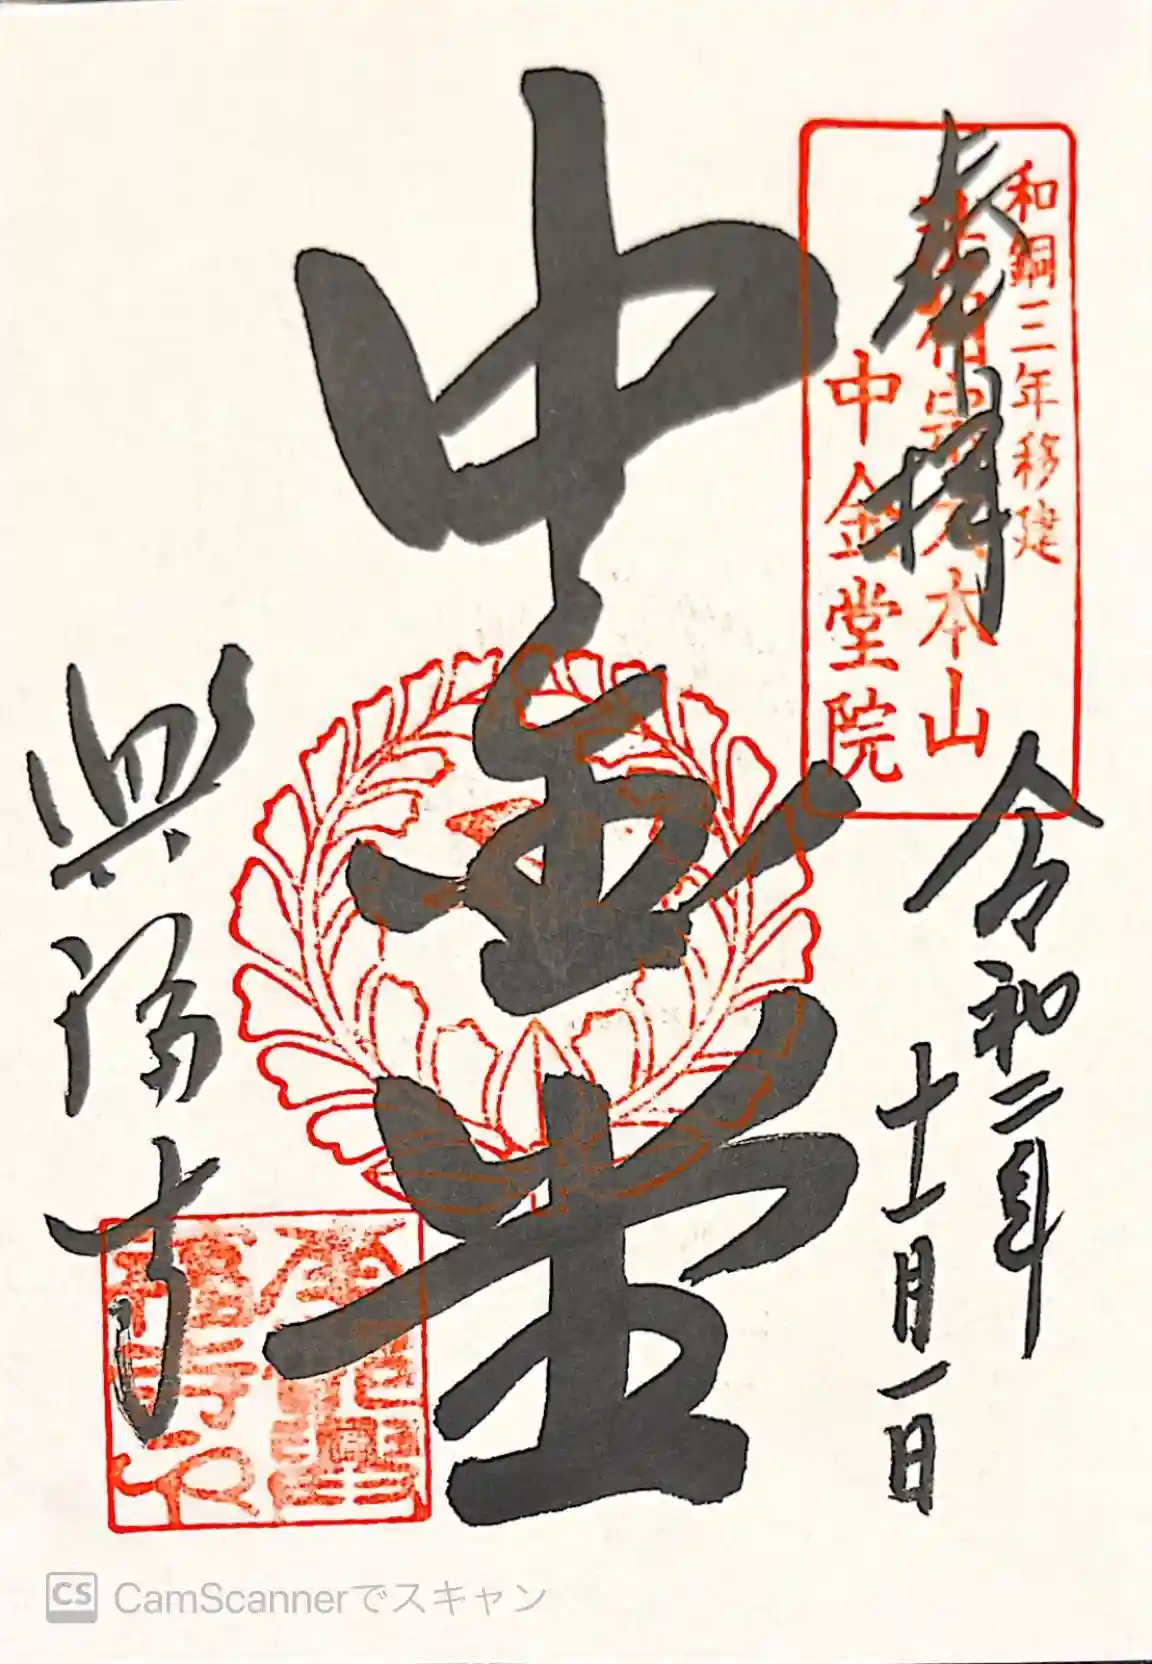 奉拝
和銅三年移建
法相宗大本山
中金堂院
令和二年
十一月一日
中金堂
興福寺
CS CamScannerでスキャン